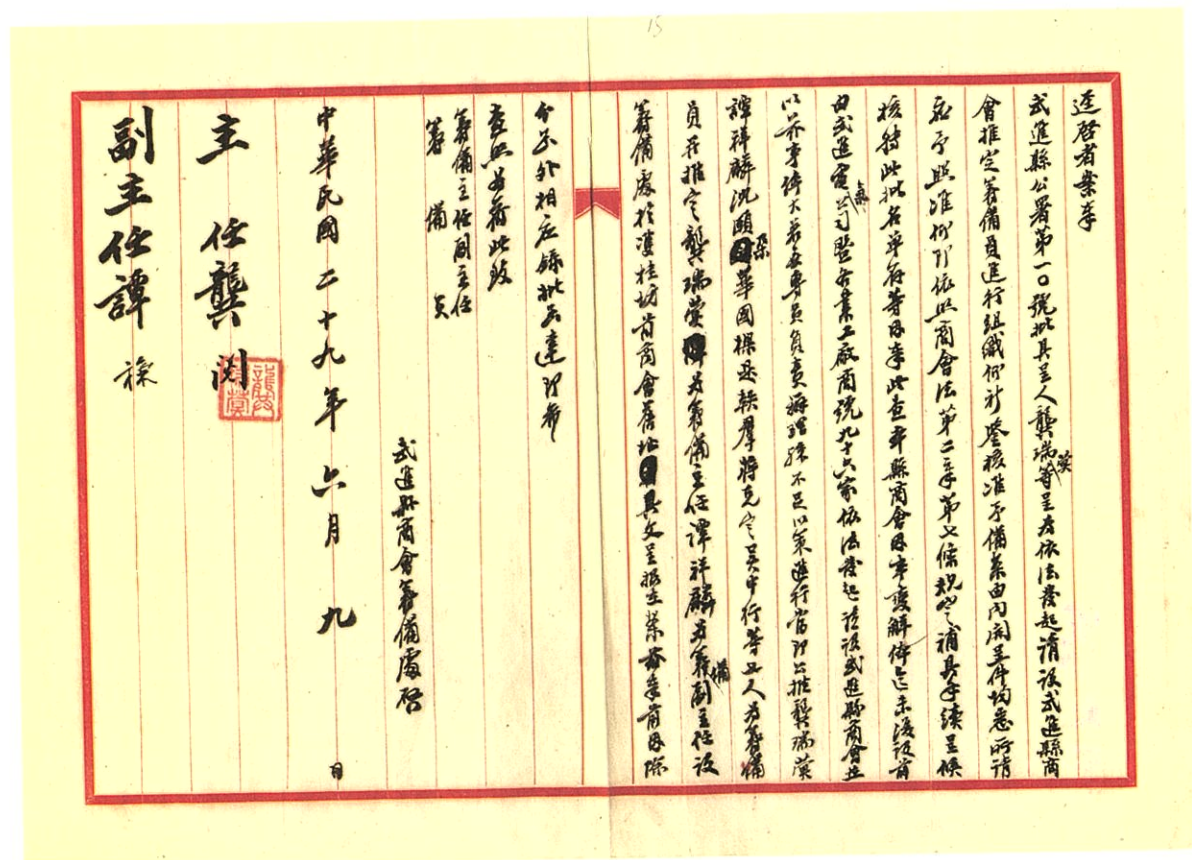 15
逕啓者案奉
武進縣公署第一〇號批具呈人龔瑞蓂等呈為依法發起請設武進縣商
會推定籌備員進行組織仰祈鑒核准予備案由內開呈件均悉所請
應予照准仰即依照商會法第二章第七條規定補具手續呈候
核特此批名單存等因奉此查本縣商會因事變解体迄未復設前
由武進電氣公司暨各業工廠商號九十六家依法發起請設武進縣商會並
以茲事体大若無專員負責辦理殊不足以策進行當即公推龔瑞蓂
譚祥麟沈頤孫華國操 軼羣蔣克定吳中行等七人為籌備
員并推定龔瑞蓂為籌備主任譚祥麟為籌備副主任設
籌備處於 桂坊前商會舊址具文呈報在案茲奉前因除
分函外相應錄批函達即希
查照為荷此致
籌備主任副主任
籌備員
武進縣商會籌備處啓
中華民國二十九年六月九日
主任龔
副主任譚